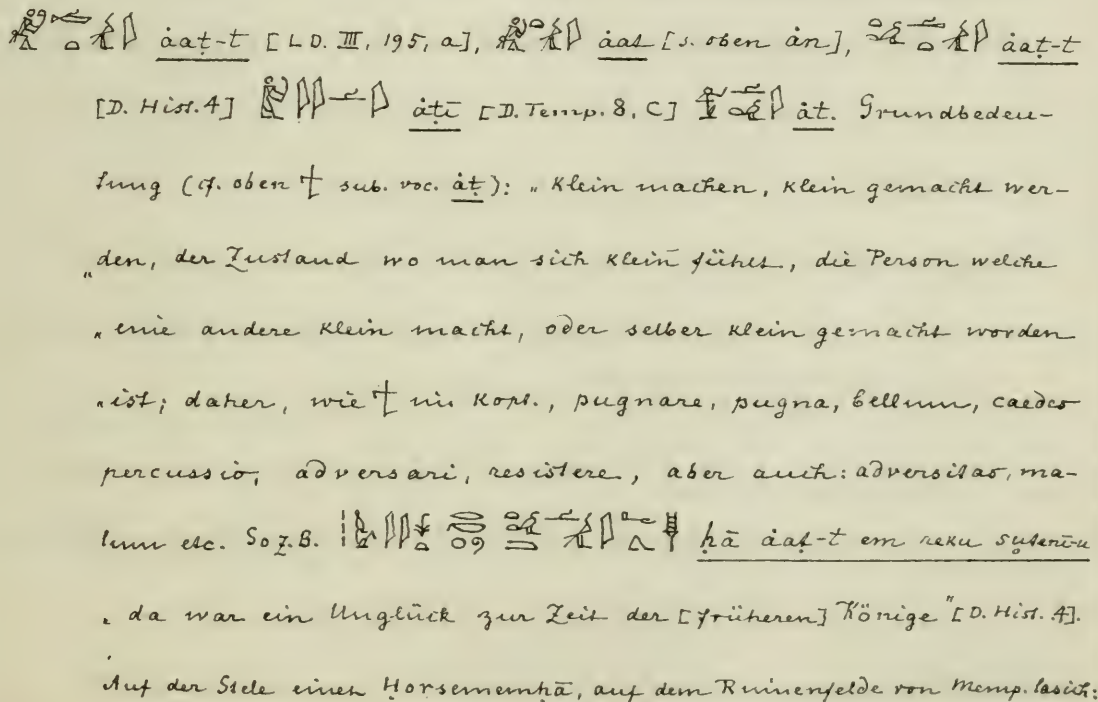 åaṭ-t [LD. III, 195, a], åat [s. oben ån], åaṭ-t
[D. Hist. 4] åṭī [D. Temp. 8, C] åt. Grundbedeu-
tung (cf. oben sub. voc. åṭ): „Klein machen, klein gemacht wer-
„den, der Zustand wo man sich klein fühlt, die Person welche
„eine andere klein macht, oder selber klein gemacht worden
„ist; daher, wie im Kopt., pugnare, pugna, bellum, caedes
percussio, adversari, resistere, aber auch: adversitas, ma-
lum etc. So z.B. ḥā åaṭ-t em reku suteni-u
„da war ein Unglück zur Zeit der [früheren] Könige" [D. Hist. 4].
Auf der Stele eines Ḥorsememḥā, auf dem Ruinenfelde von Memp. las ich: